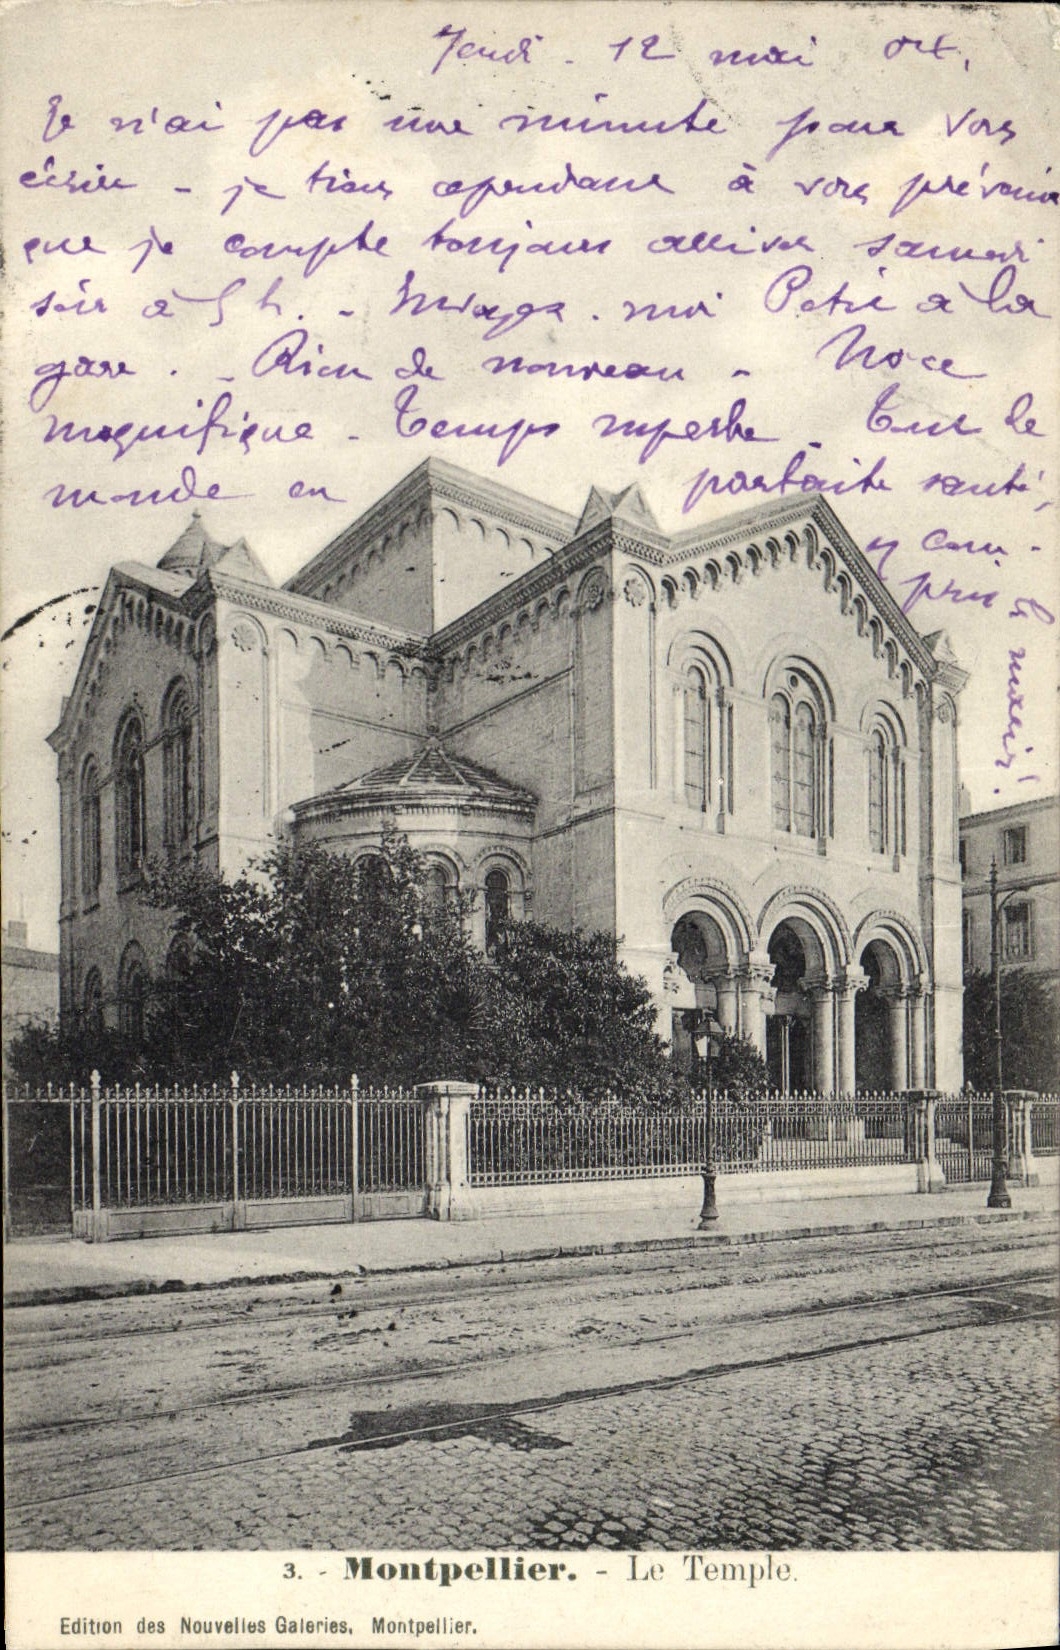 Jeudi - 12 mai 04.
Je n'ai pas une minute pour vous
écrire - je tiens cependant à vous prévenir
que je compte toujours arriver samedi
soir à 5 h. - Envoyez-moi Petit à la
gare. - Rien de nouveau - Noce
magnifique - Temps superbe - Tout le
monde en parfaite santé,
y com-
pris le
marié!
3. - Montpellier. - Le Temple.
Edition des Nouvelles Galeries, Montpellier.